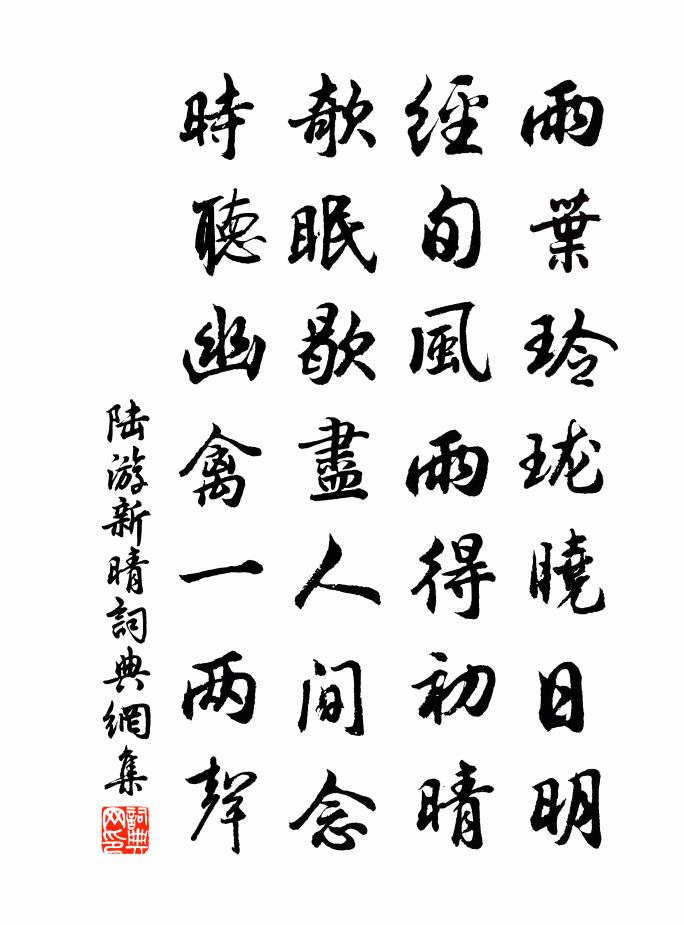 雨葉玲珑曉日明
經旬風雨得初晴
欹眠歇盡人间念
時聽幽禽一两聲
陆游新晴詞典網集
詞典网印